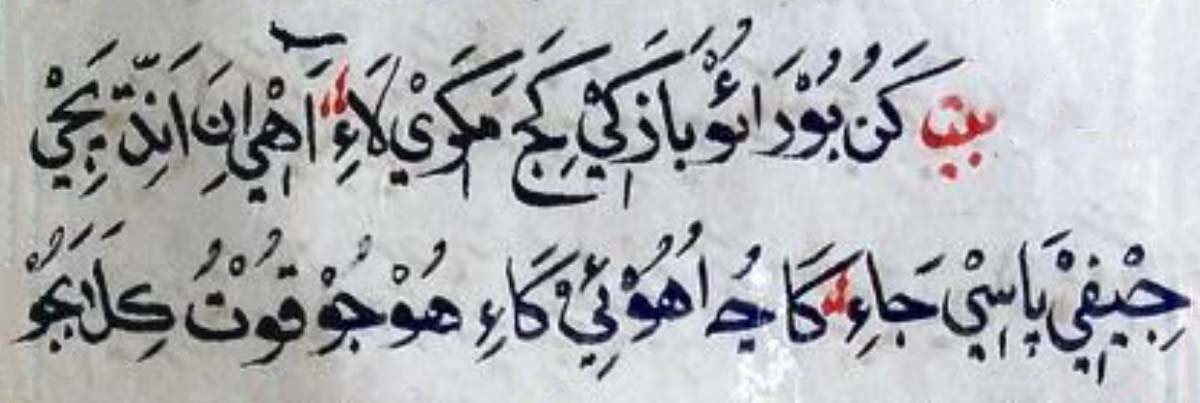 بيت كَنُ بُوْرَا ئُوْ بَازَكيْ كِجَ مَكَوْيْ لَاءِ، آهْيِ انَ اَنڌَ پَچيْ
جِيْفيْ پَاسِيْ جَاءِ، كَا جُ اهُوْئيْ كَاءِ هُوْجُوْ قُوْتُ كِلَابَجُوْ